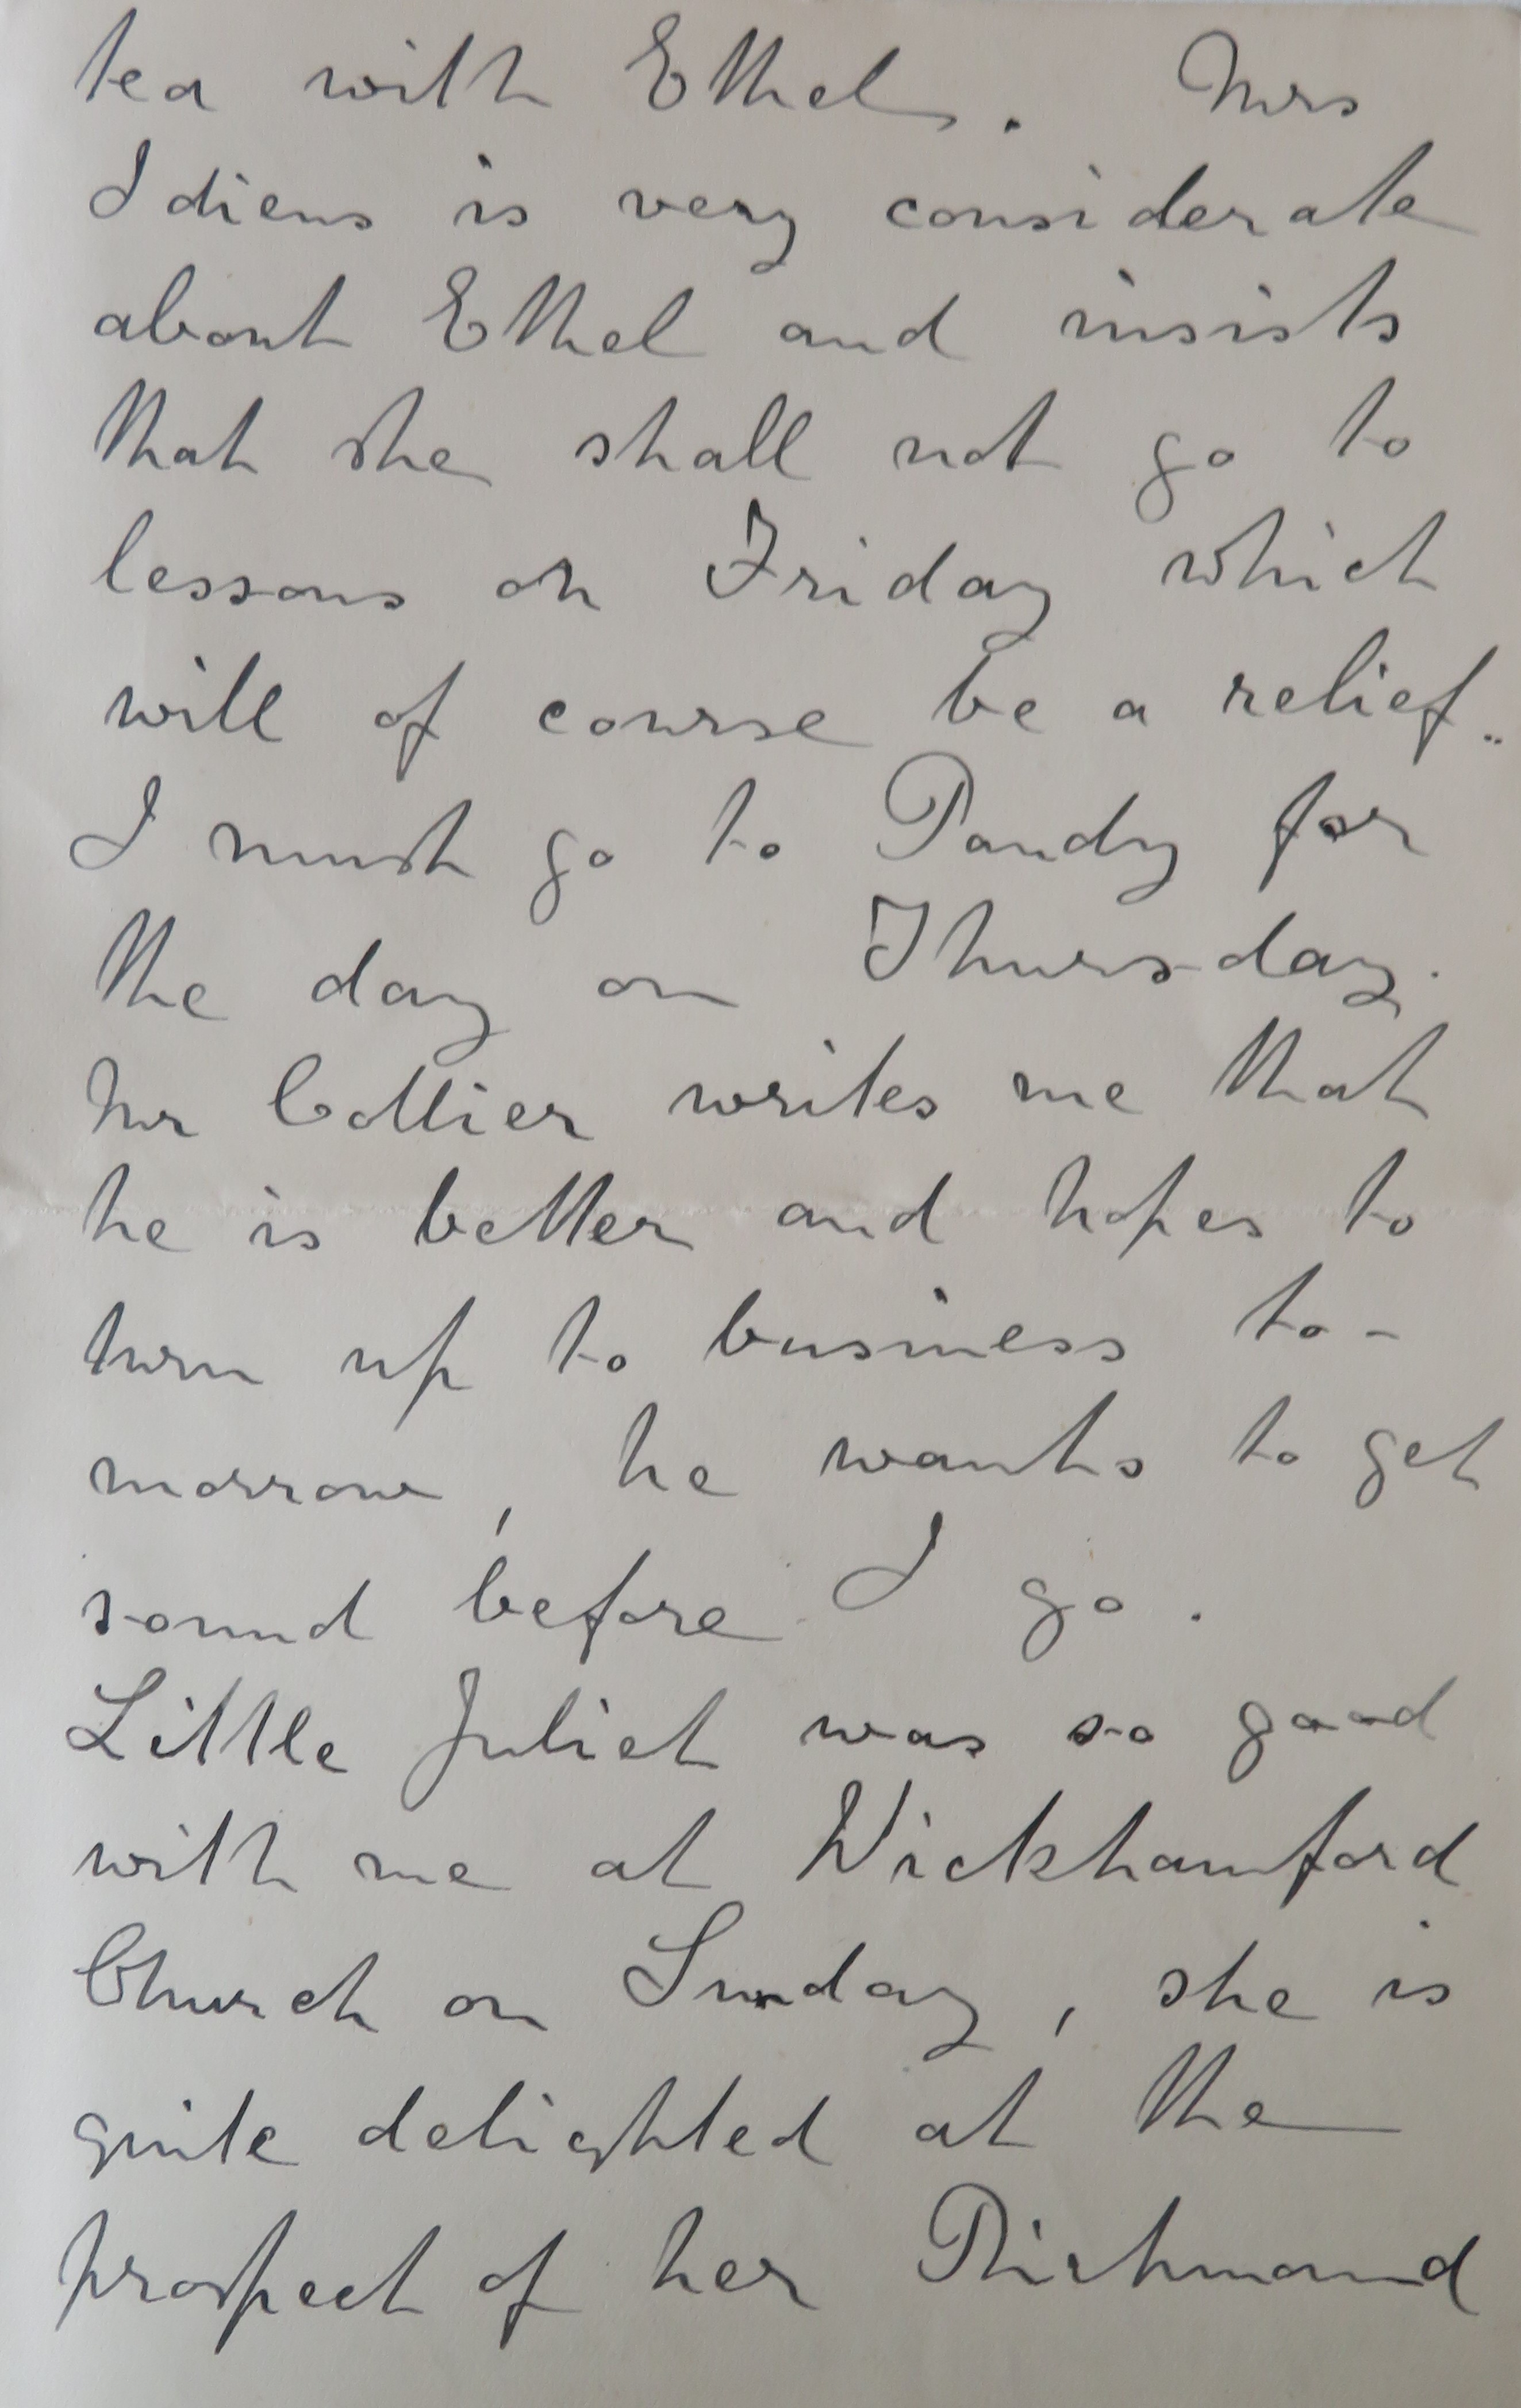 tea with Ethel. Mrs
Idiens is very considerate
about Ethel and insists
that she shall not go to
lessons on Friday which
will of course be a relief..
I must go to Pandy for
the day on Thursday.
Mr Collier writes me that
he is better and hopes to
turn up to business to-
morrow, he wants to get
sound before I go.
Little Juliet was so good
with me at Wickhamford
Church on Sunday, she is
quite delighted at the
prospect of her Richmond